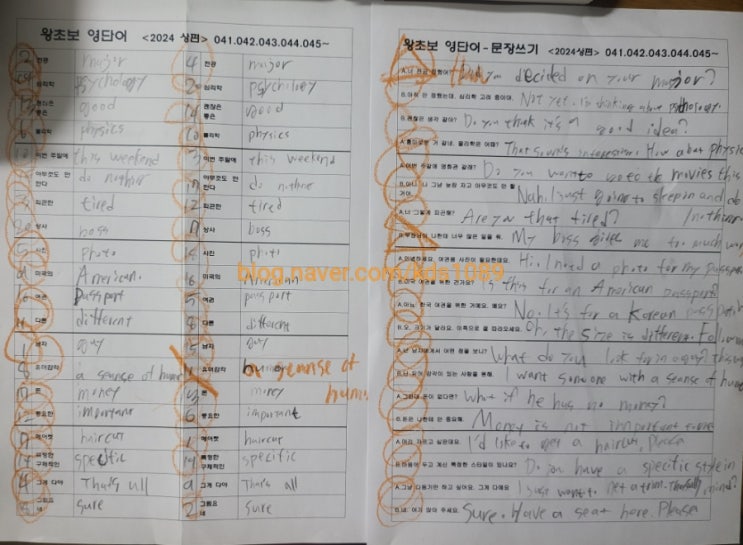 왕초보 영단어 <2024 상편> 041.042.043.044.045~
2 전공 major 4 전공 major
심리학 psychology 심리학 psychiliey
괜찮은 좋은 good 괜찮은 좋은 good
물리학 physics 물리학 physics
이번 주말에 this weekend 3 이번 주말에 this weekend
아무것도 안 한다 do nothin 아무것도 안 한다 do nothine
피곤한 tired 12 피곤한 tired
상사 boss 상사 boss
사진 photo 사진 photo
미국의 American. 미국의 American
여권 passport 여권 passport
다른 different 다른 different
남자 guy 남자 guy
유머감각 a seanse of hume 유머감각 seanse of hums
돈 money 돈 money
중요한 important 중요한 important
헤어컷 haircut 헤어컷 haircut
특정한 구체적인 specific 특정한 구체적인 specific
그게 다야 That's all 그게 다야 That's all
그럼요 네 sure 2 그럼요 네 sure
blog.naver.com/kds1089
왕초보 영단어 - 문장쓰기 <2024상편> 041.042.043.044.045~
A.너 전공 정했어? Have you decided on your major?
B.아직 안 정했는데, 심리학 고려 중이야. Not yet. thinking about
A.괜찮은 생각 같아? Do you think it's a good idea?
B.흥미로운 거 같네. 물리학은 어때? That sounds interesting. How about physic
A.이번 주말에 영화관 갈래? Do you want to movies this
B.아니. 나 그냥 늦잠 자고 아무것도 안 할 거야. Nah, I just going to sleep in and do
A.너 그렇게 피곤해? Are you that tired? nothin
My boss gives me too much wor
Hi. I need a photo for my passpor
Is this for an American passport?
A.아뇨. 한국 여권을 위한 거예요. 왜요? No. It's for a Korean passport
B.오, 크기가 달라요. 이쪽으로 절 따라오세요. Oh, the size is different. Follow
A.넌 남자에게서 어떤 점을 보니? What do you look for in a guy?
B.난 유머 감각이 있는 사람을 원해. I want someone with a seanse of hume
A.그런데 돈이 없다면? What if he has no money?
B.돈은 나한테 안 중요해. Money is not important to me
A.머리 자르고 싶은데요. I'd like to get a haircut, please
B.마음에 두고 계신 특정한 스타일이 있나요? Do you have a specific style in
A.그냥 다듬기만 하고 싶어요. 그게 다예요. I just want to get a trim. That's all mind?
B.네. 여기 앉아 주세요. Sure. Have a seat here. Please